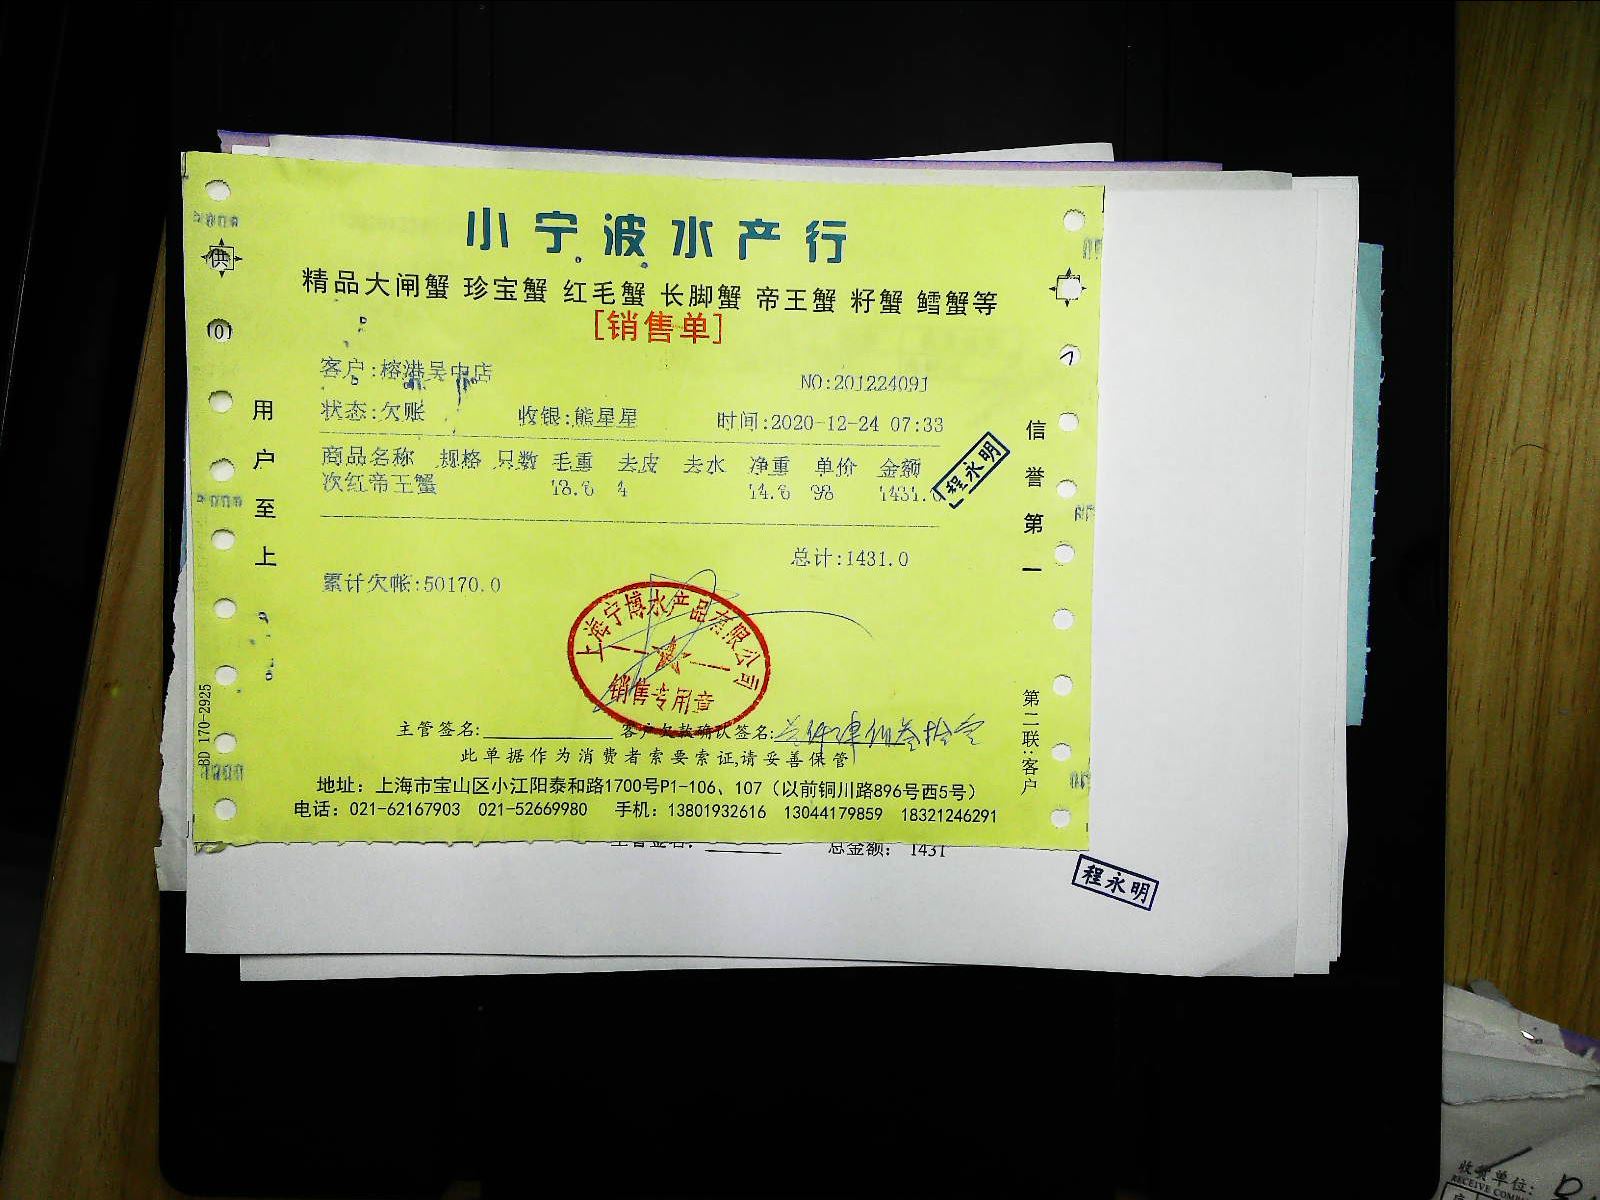 小宁波水产行
精品大闸蟹 珍宝蟹 红毛蟹 长脚蟹 帝王蟹 籽蟹 鳕蟹等
[销售单]
供
客户:榕港吴中店
NO:201224091
状态:欠账 收银:熊星星 时间:2020-12-24 07:33
商品名称 规格 只数 毛重 去皮 去水 净重 单价 金额
次红帝王蟹 18.6 4 14.6 98 1431.0
程永明
总计:1431.0
累计欠帐:50170.0
用户至上
信誉第一
上海宁博水产品有限公司
销售专用章
主管签名: 客户欠款确认签名:
此单据作为消费者索要索证,请妥善保管
地址：上海市宝山区小江阳泰和路1700号P1-106、107（以前铜川路896号西5号）
电话：021-62167903 021-52669980 手机：13801932616 13044179859 18321246291
BD 170-2925
第二联:客户
主管签名: 总金额： 1431
程永明
收货单位:
RECEIVE